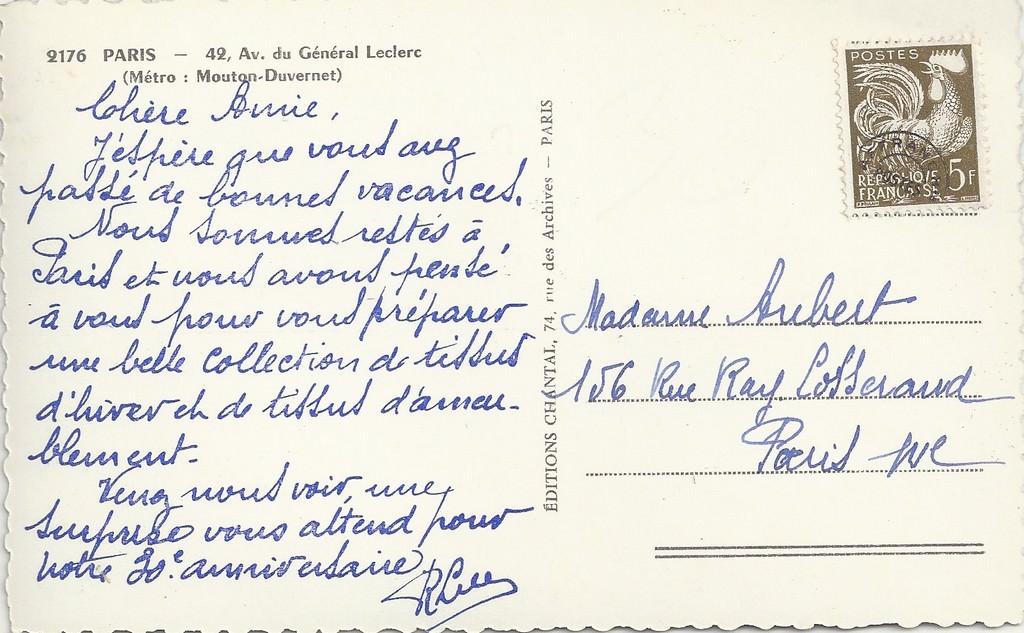 2176 PARIS — 42, Av. du Général Leclerc
(Métro : Mouton-Duvernet)
Chère Amie,
J'éspère que vous avez
passé de bonnes vacances.
Nous sommes restés à
Paris et nous avons pensé
à vous pour vous préparer
une belle collection de tissus
d'hiver et de tissus d'ameu-
blement.
Venez nous voir, une
surprise vous attend pour
notre 30e anniversaire
ÉDITIONS CHANTAL, 74, rue des Archives — PARIS
POSTES
5F
RÉPUBLIQUE
FRANÇAISE
Madame Aubert
156 Rue Ray. Losserand
Paris